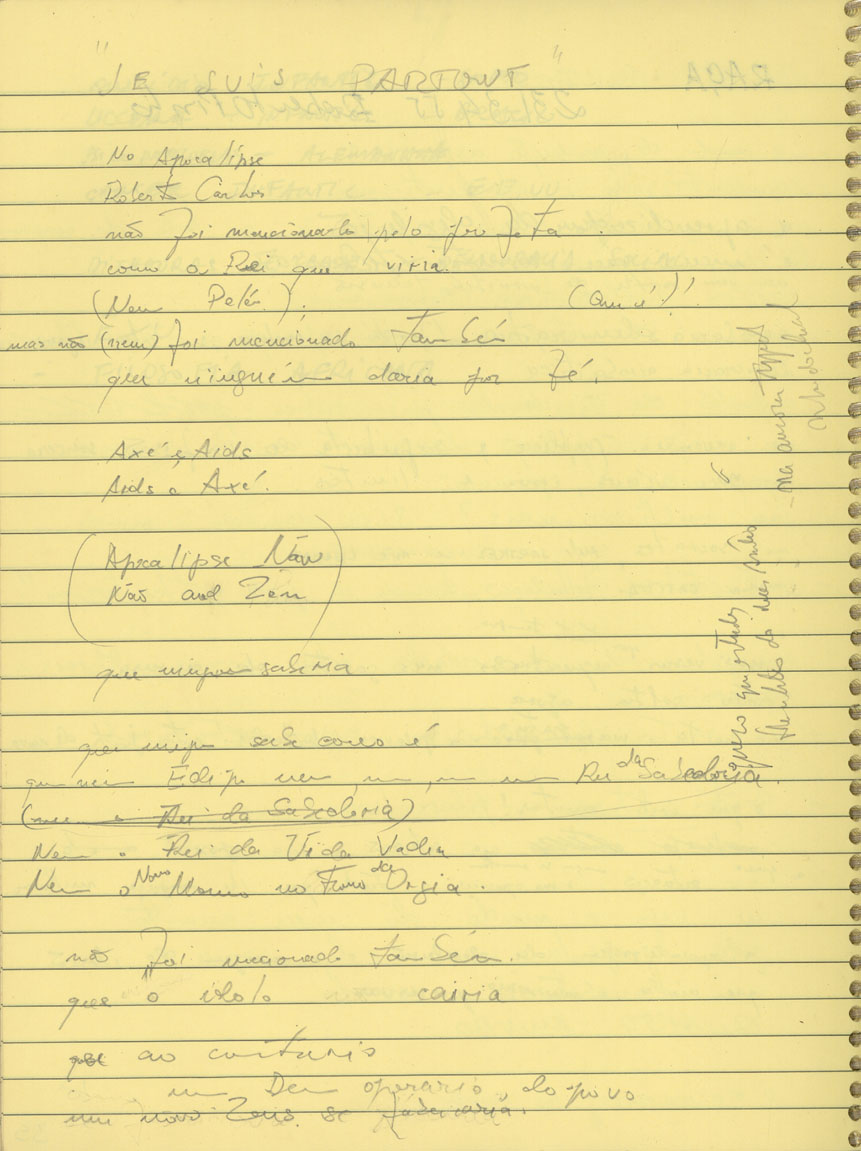 "JE SUIS PARTOUT"
No Apocalipse
Roberto Carlos
não foi mencionado pelo profeta
como o Rei que viria.
(Nem Pelé). (Quié!)!
mas não (nem) foi mencionado também
que ninguém daria por fé.
Axé e Aids
Aids e Axé.
(Apocalipse Não
Não and Zen)
que ninguém saberia
que ninguém sabe como é
que nem Édipo nem, nem, nem, nem Rei da Sabedoria.
(nem o Rei da Sabedoria)
Nem o Rei da Vida Vadia
Nem o Novo Momo no Trono da Orgia.
não foi mencionado também.
que o ídolo cairia
que ao contrário
um Deus operário do povo
um novo Zeus se
- na aurora
quero que